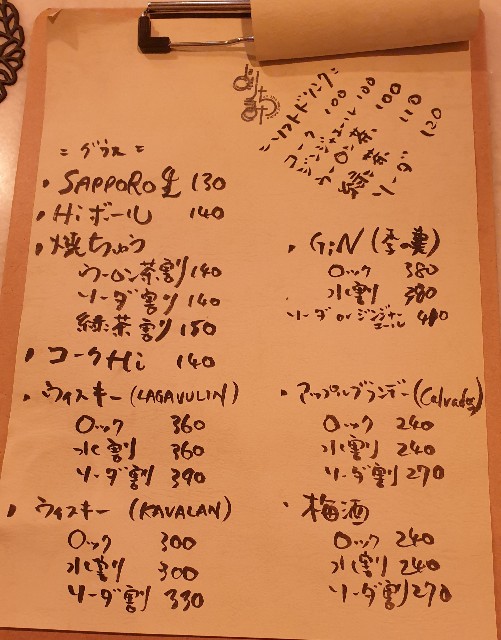 = グラス =
・SAPPORO生 130
・Hiボール 140
・焼ちゅう
ウーロン茶割 140
ソーダ割 140
緑茶割 150
・コークHi 140
・ウィスキー (LAGAVULIN)
ロック 360
水割 360
ソーダ割 390
・ウィスキー (KAVALAN)
ロック 300
水割 300
ソーダ割 330
=ソフトドリンク=
コーク 100
ジンジャエール 100
ウーロン茶 100
緑茶 110
ソーダ 120
・GiN (季の美)
ロック 380
水割 380
ソーダ or ジンジャーエール 410
・アップルブランデー (Calvados)
ロック 240
水割 240
ソーダ割 270
・梅酒
ロック 240
水割 240
ソーダ割 270